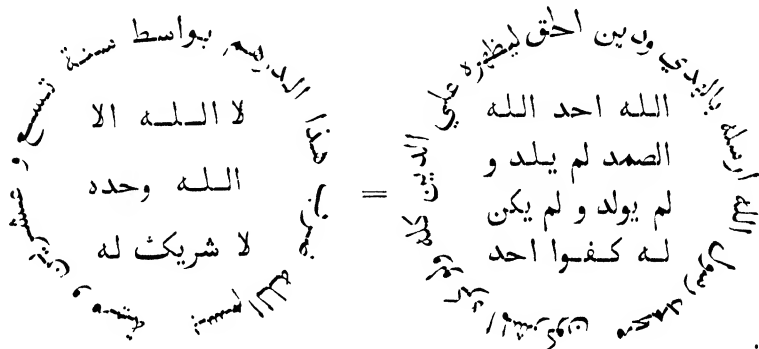 لا اللـه الا
اللـه وحده
لا شريك له
بسم الله ضرب هذا الدرهم بواسط سنة تسع و عشرين و مية
=
اللـه احد اللـه
الصمد لم يـلـد و
لم يولد و لم يكن
لـه كـفـوا احد
محمد رسول الله ارسله بالهدي ودين الحق ليظهره علي الدين كله ولو كره المشركون